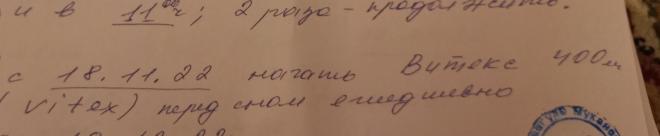 и в 11⁰⁰ч; 2 раза - продолжить.
с 18.11.22 начать Витекс 400мг
(vitex) перед сном ежедневно